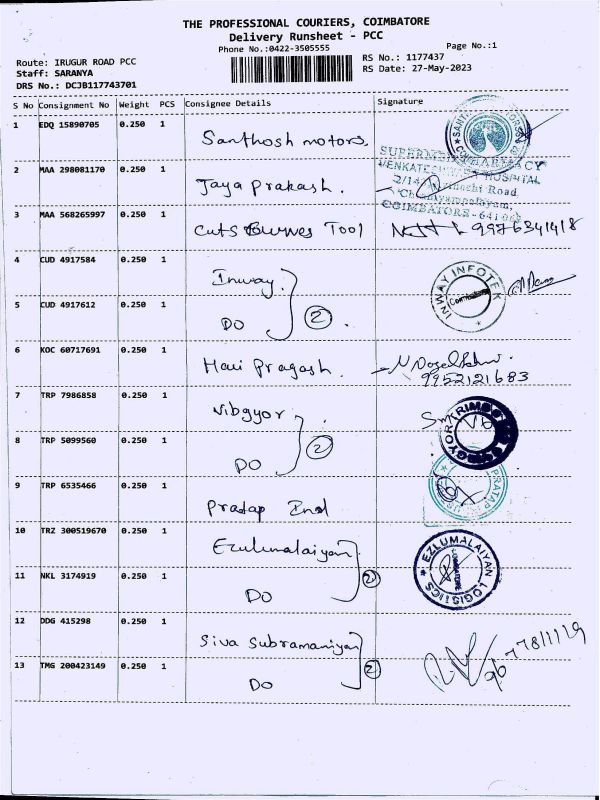 THE PROFESSIONAL COURIERS, COIMBATORE
Delivery Runsheet - PCC
Phone No.:0422-3505555
Page No.:1
Route: IRUGUR ROAD PCC
Staff: SARANYA
DRS No.: DCJB117743701
RS No.: 1177437
RS Date: 27-May-2023
S No Consignment No Weight PCS Consignee Details Signature
1 EDQ 15890705 0.250 1 Santhosh motors.
2 MAA 298081170 0.250 1 Jaya prakash.
SUPERMED PHARMACY
VENKATESWARA HOSPITAL
COIMBATORE-641
3 MAA 568265997 0.250 1 Cuts Tool 9976341418
4 CUD 4917584 0.250 1 Inway.
INWAY INFOTEK
Coimbatore
5 CUD 4917612 0.250 1 DO 2
6 KOC 60717691 0.250 1 Hari Pragash.
9952121683
7 TRP 7986858 0.250 1 Nibgyor
8 TRP 5099560 0.250 1 DO 2
9 TRP 6535466 0.250 1 Pratap Ind
PRATAP
10 TRZ 300519670 0.250 1 Ezulumalaiyan
EZLUMALAIYAN LOGISTICS
COIMBATORE
11 NKL 3174919 0.250 1 DO 2
12 DDG 415298 0.250 1 Siva Subramaniyan
13 TMG 200423149 0.250 1 DO 2